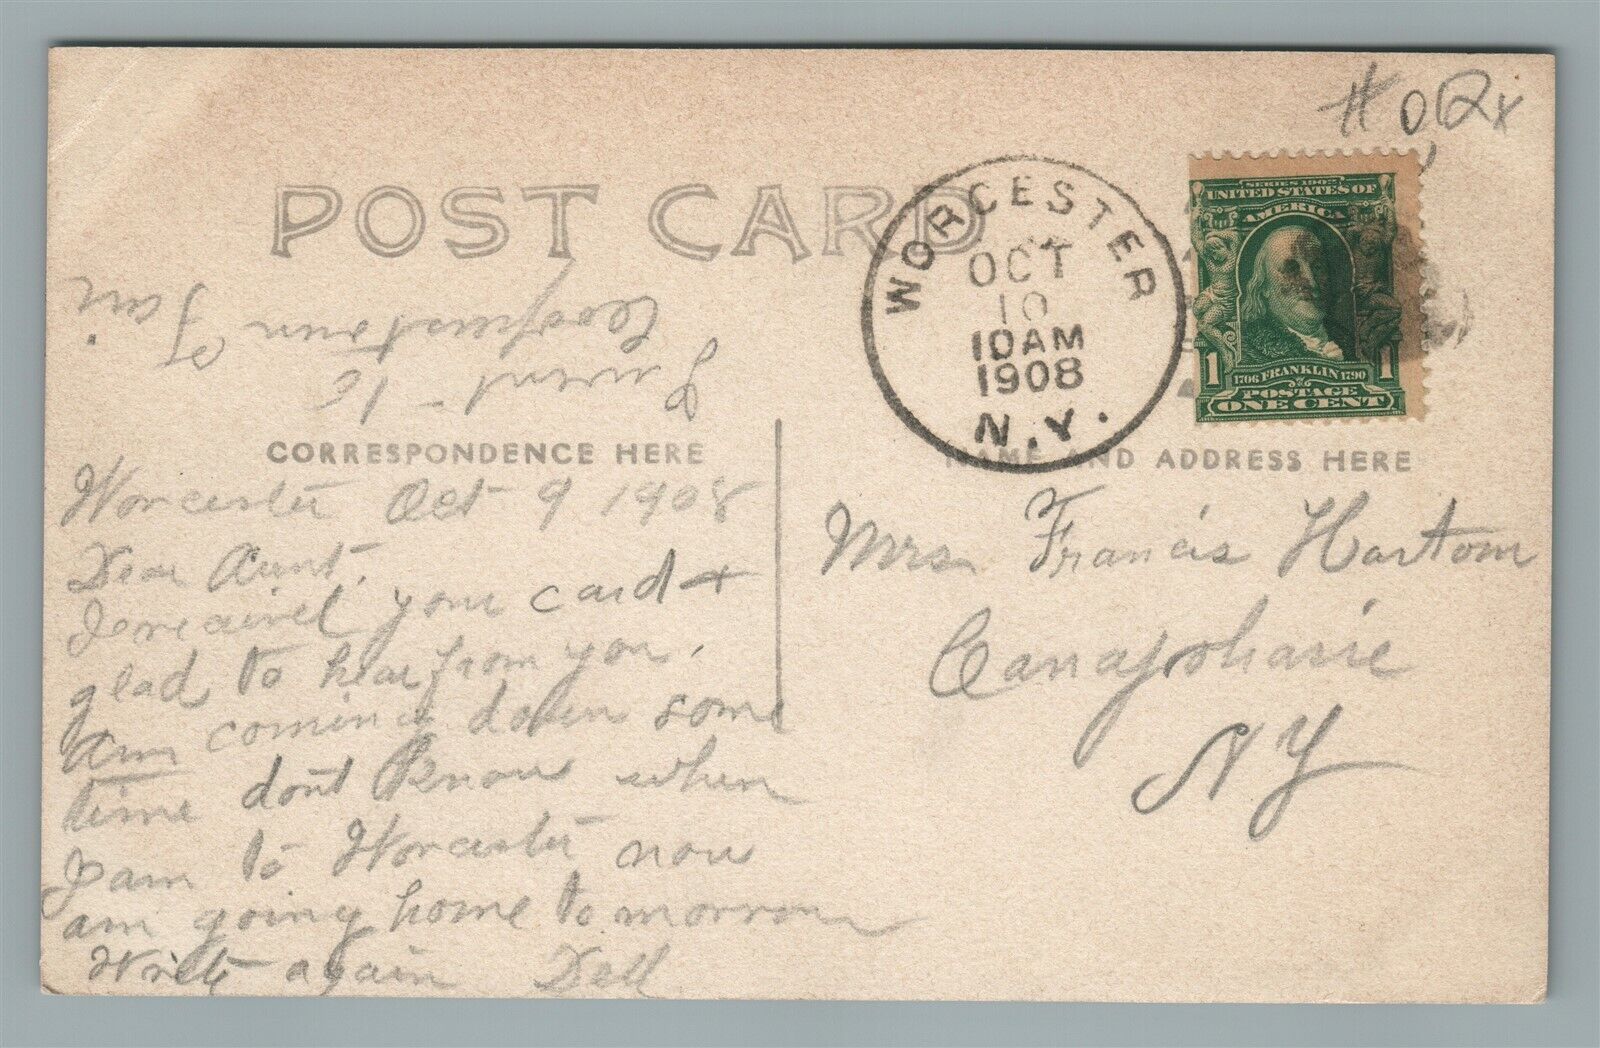 POST CARD
WORCESTER
OCT
10
10 AM
1908
N.Y.
SERIES 1902
UNITED STATES OF
AMERICA
1 1706 FRANKLIN 1790 1
POSTAGE
ONE CENT
I went to
Cooperstown
Fair
CORRESPONDENCE HERE
NAME AND ADDRESS HERE
Worcester Oct 9 1908
Dear Aunt.
I received your card +
glad to hear from you.
Am coming down some
time dont know when
I am to Worcester now
am going home tomorrow
Write again Dell
Mrs Francis Hartom
Canajoharie
N Y